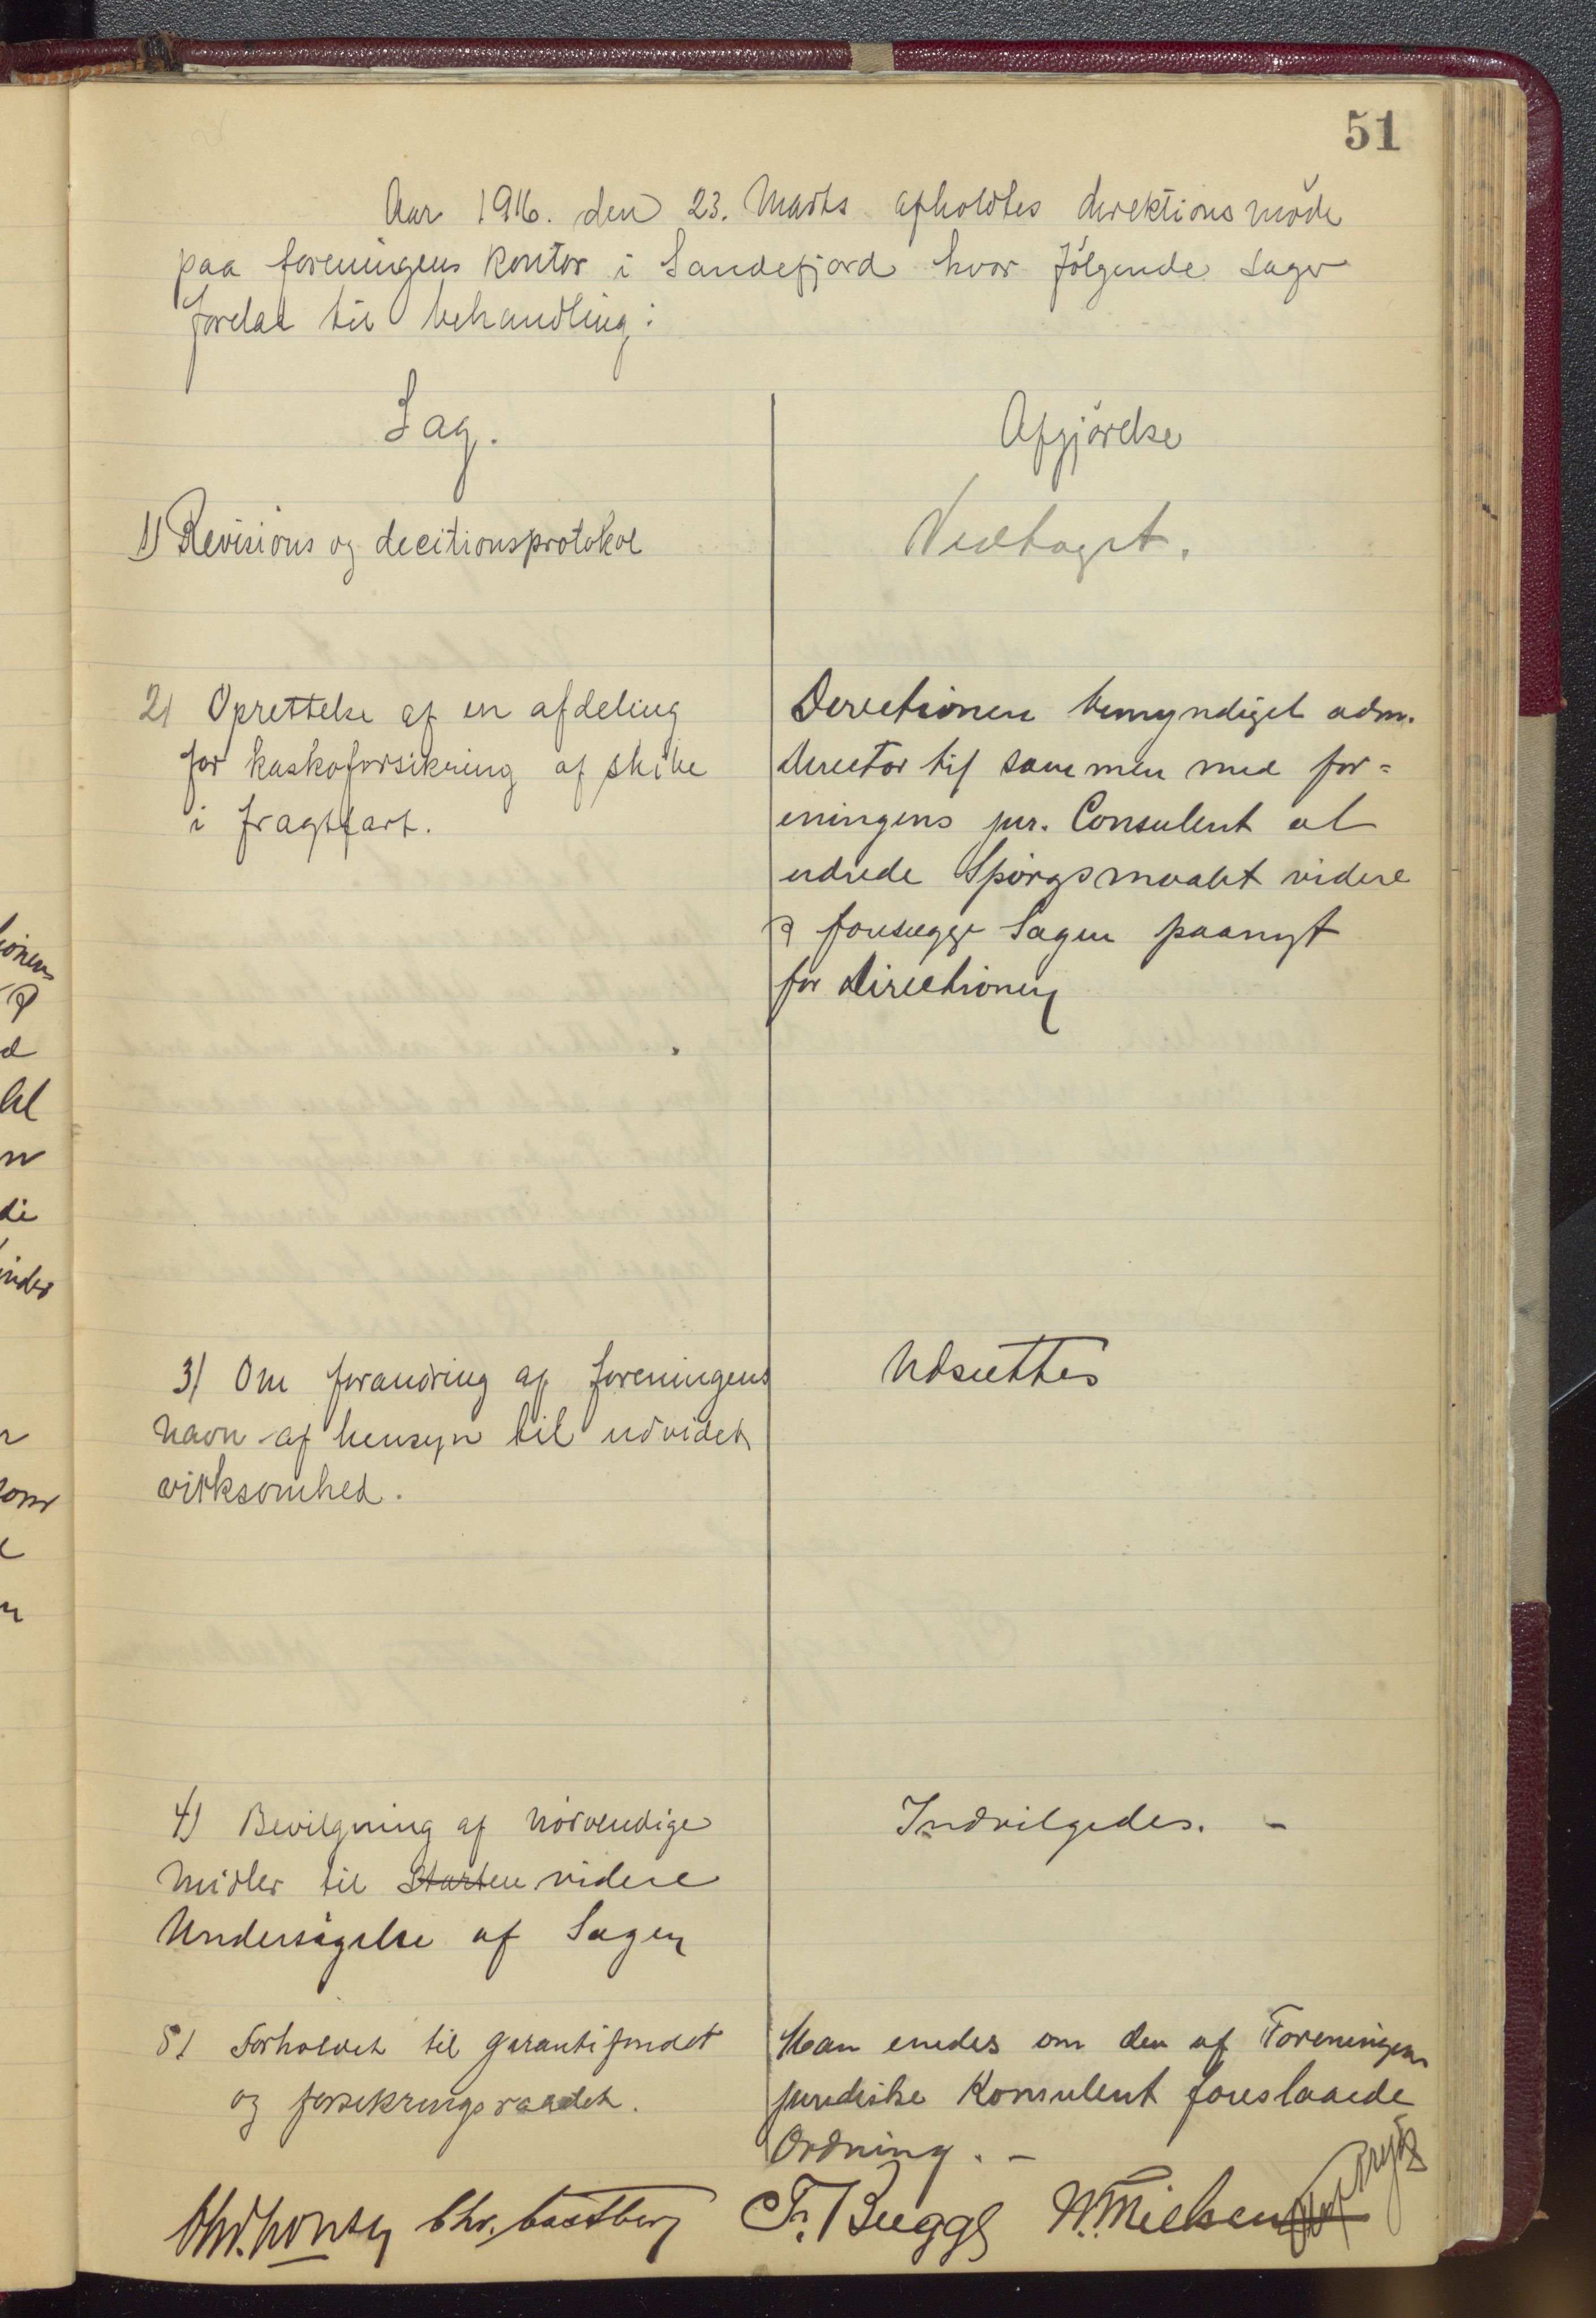 51
Aar 1916. den 23. Marts afholdtes direktionsmøde
paa foreningens kontor i Sandefjord hvor følgende sager
forelaa til behandling:
Sag.
Afgjørelse
1) Revisions og decitionsprotokol
Vedtaget.
2) Oprettelse af en afdeling
for kaskoforsikring af skibe
i fragtfart.
Directionen bemyndiget adm.
director til sammen med for=
eningens jur. Consulent at
udrede Spørgsmaalet videre
& forelægge Sagen paanyt
for Directionen
3) Om forandring af foreningens
navn af hensyn til udvidet
virksomhed.
Udsættes
4) Bevilgning af nødvendige
midler til Starten videre
Undersøgelse af Sagen
Indvilgedes. -
5) Forholdet til garantifondet
og forsikringsraadet.
Man enedes om den af Foreningens
juridiske Konsulent foreslaaede
Ordning. -
Chr. Castberg Fr. Bugge N. Nielsen
ionens
&
d
til
n
di
inder
r
som
e
n